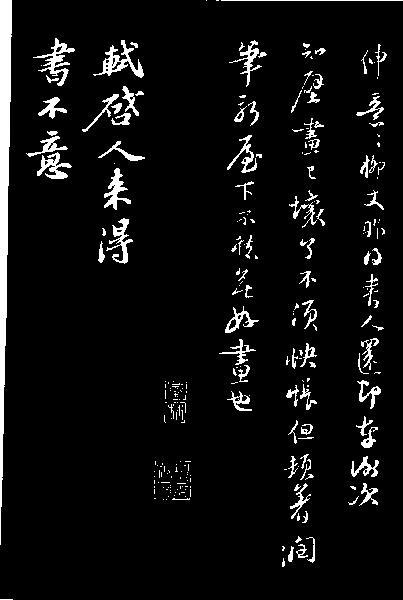 仲意々柳丈昨得書人還即奉謝次
知壁畫已壞了不須怏悵但頓著潤
筆新屋下不愁無好畫也
軾啓人来得
書不意